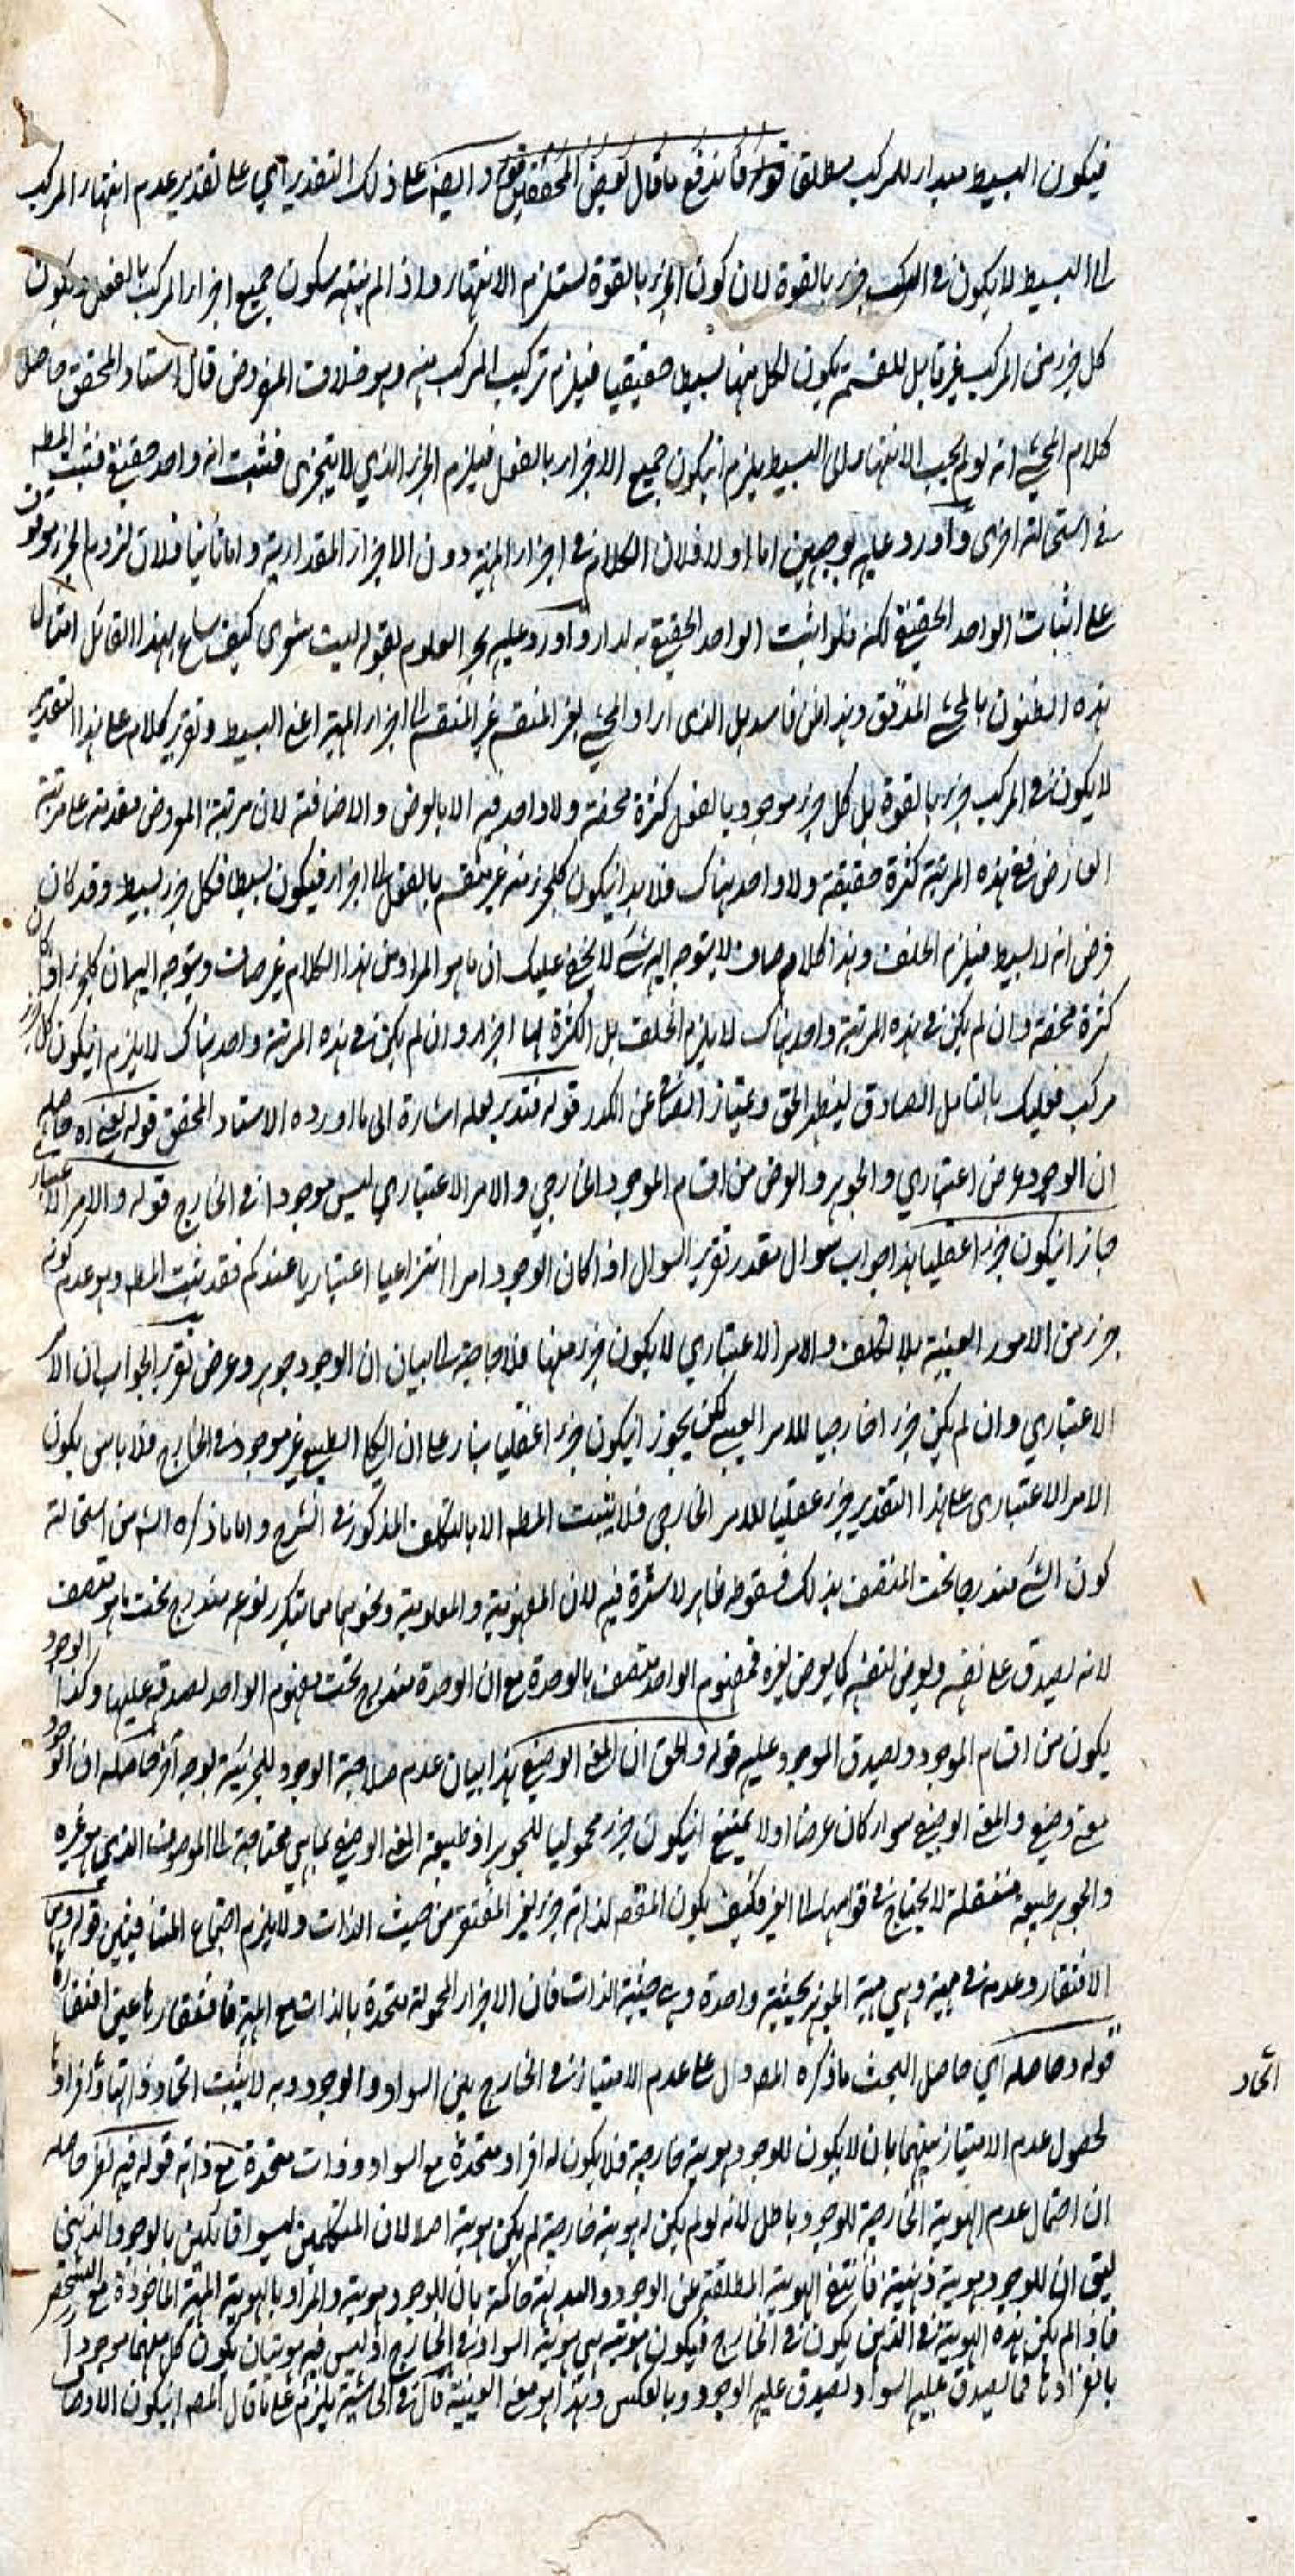 فيكون البسيط مبدار للمركب مطلقا قوله فاندفع ما قال بعض المحققين قوله وايضا على ذلك التقدير اي على تقدير عدم انتهار المركب
الى البسيط لا يكون في المركب جزر بالقوة لان كون الجزر بالقوة يستلزم الانتهار واذا لم ينته سيكون جميع اجزار المركب بالفعل ويكون
كل جزر من المركب غير قابل للقسمة يكون لكل منها بسيطا حقيقيا فيلزم تركيب المركب منه وهو خلاف المفروض قال استاد المحقق حاصل
كلام المحشي انه لو لم يجب الانتهار الى البسيط يلزم انيكون جميع الاجزار بالفعل فيلزم الجزر الذي لا يتجزى فثبت انه واحد حقيقي فثبت المطـ
في استحالته اخرى واورد عليه بوجهين اما اولا فلان الكلام في اجزار المهية دون الاجزار المقدارية واما ثانيا فلان لزوم الجزر موقوف
على اثبات الواحد الحقيقي لكنه فلو اثبت الواحد الحقيقي به لدار واورد عليه بحر العلوم بقوله ليت شعرى كيف ساغ لهذا القائل امثال
هذه الظنون بالمحشي المدقق وهذا ظن فاسد بل الذى اراد المحشي بغير المنقسم غير المنقسم الى اجزار المهية اعني البسيط وتقرير كلامه على هذا التقدير
لا يكون في المركب جزر بالقوة بل كل جزر موجود بالفعل كثرة محضة ولا واحد فيه الا بالعرض والاضافة لان مرتبة المعروض مقدمة على مرتبة
العارض ففي هذه المرتبة كثرة حقيقية ولا واحد هناك فلا بد انيكون كل جزر منه غير منقسم بالفعل الى اجزار فيكون بسيطا فكل جزر بسيط وقد كان
فرض انه لا بسيط فيلزم الخلف وهذا كلام صاف لا يتوجه اليه شئ لا يخفى عليك ان ما هو المراد من هذا الكلام غير صاف ويتوجه اليه ان كل جزر اذا كان
كثرة محضة وان لم يكن في هذه المرتبة واحد هناك لا يلزم الخلف بل الكثرة لها اجزار وان لم يكن في هذه المرتبة واحد هناك لا يلزم انيكون كل جزر
مركب فعليك بالتامل الصادق ليظهر الحق ويمتاز الصافي عن الكدر قوله فتدبر لعله اشارة الى ما اورده الاستاد المحقق قوله يعني اه حاصله
ان الوجود عرض اعتباري والجوهر والعرض من اقسام الموجود الخارجي والامر الاعتباري ليس موجودا في الخارج قوله والامر الاعتبار
جاز انيكون جزر اعقليا هذا جواب سوال مقدر تقرير السوال اذا كان الوجود امرا انتزاعيا اعتباريا عندكم فقد يثبت المطـ وهو عدم كونه
جزر من الامور العينية بلا تكلف والامر الاعتباري لا يكون جزر منها فلا حاجة الى بيان ان الوجود جوهر وعرض تقرير الجواب ان الامر
الاعتباري وان لم يكن جزر اخارجيا للامر العيني لكن يجوز انيكون جزر اعقليا بنار على ان الكلى الطبيعي غير موجود في الخارج فلا باس بكون
الامر الاعتبارى على هذا التقدير جزر عقليا للامر الخارجي فلا يثبت المطـ الا بالتكلف المذكور في الشرح واما ما ذكره الشـ من استحالة
كون الشئ مندرجا تحت المتصف بذلك فسقوطه ظاهر لا سترة فيه لان المفهومية والمعلومية ونحوهما مما يتكرر نوعه مندرج تحت ما هو متصف
لانه يصدق على نفسه ويعرض لنفسه كما يعرض لغيره فمفهوم الواحد متصف بالوحدة مع ان الوحدة مندرج تحت مفهوم الواحد لصدقه عليها وكذا الوجود
يكون من اقسام الموجود ويصدق الموجود عليه قوله والحق ان المعنى الوصفي هذا بيان عدم صلاحية الوجود للجزئية بوجه آخر حاصله ان الوجود
معنى وصفي والمعنى الوصفي سوار كان عرضا اولا يمتنع انيكون جزر محموليا للجوهر اذ طبيعة المعنى الوصفي بما هي محتاجة الى الموصوف الذي هو غيره
والجوهر طبيعة مستقلة لا يحتاج في قوامها الى الغير فكيف يكون المفتقر لذاته جزر لغير المفتقر من حيث الذات ولا يلزم اجتماع المتنافيين قوله وهما
الافتقار وعدمه في مهية وهي مهية الجوهر بحيثية واحدة وهى حيثية الذات فان الاجزار المحمولة متحدة بالذات مع المهية فافتقارها عين افتقارها
قوله وحاصله اي حاصل البحث ما ذكره المصـ دال على عدم الامتياز في الخارج بين السواد والوجود وبه لا يثبت اتحاد ذواتها وافرادها
اتحاد
لحصول عدم الامتياز بينهما بان لا يكون للوجود هوية خارجية فلا يكون له افراد متحدة مع السواد وذات متحدة مع ذاته قوله فيه نظر حاصله
ان احتمال عدم الهوية الخارجية للوجود باطل لانه لو لم يكن له هوية خارجية لم يكن هوية اصلا لان المتكلمين ليسوا قائلين بالوجود الذهني
ليق ان للوجود هوية ذهنية فانتفى الهوية المطلقة عن الوجود والبديهة حاكمة بان للوجود هوية والمراد بالهوية المهية الماخوذة مع التشخص
فاذا لم يكن هذه الهوية في الذهن يكون في الخارج فيكون هويته هي هوية السواد في الخارج اذ ليس فيه هويتان يكون كل منهما موجودا
بانفرادها فما يصدق عليه السواد يصدق عليه الوجود وبالعكس وهذا هو معنى العينية قال في الحاشية يلزم على ما قال المصـ انيكون الاوصاف